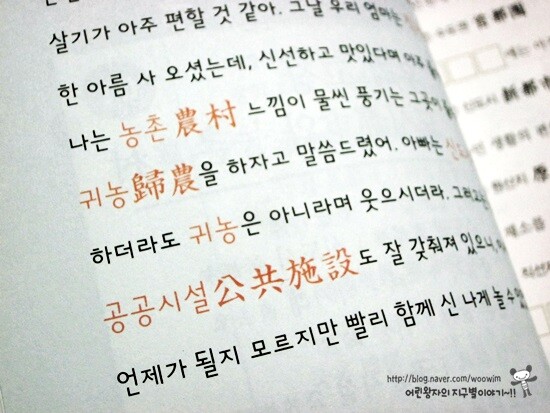 살기가 아주 편할 것 같아. 그날 우리 엄마는
한 아름 사 오셨는데, 신선하고 맛있다며 아주
나는 농촌農村 느낌이 물씬 풍기는 그곳이
귀농歸農을 하자고 말씀드렸어. 아빠는
하더라도 귀농은 아니라며 웃으시더라. 그러고
공공시설公共施設도 잘 갖춰져 있으니,
언제가 될지 모르지만 빨리 함께 신 나게 놀 수
首都圈
新都
생활의 편
摩
채소를
http://blog.naver.com/woowim
어린왕자의 지구별이야기~!!